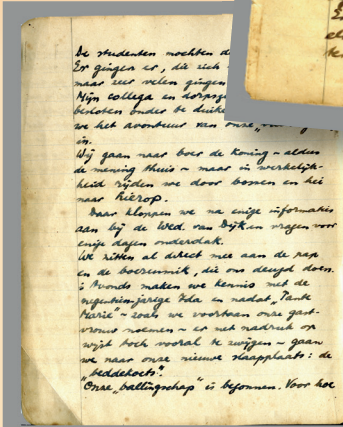 De studenten mochten d
Er gingen er, die zich
maar zeer velen gingen
Mijn collega en dorpsge
besloten onder te duike
we het avontuur van onze
in.
Wij gaan naar boer de Koning - aldus
de mening thuis - maar in werkelijk-
heid rijden we door bossen en hei
naar Hierop.
Daar kloppen we na enige informaties
aan bij de Wed. van Dijk en vragen voor
enige dagen onderdak.
We zitten al direct mee aan de pap
en de boerenmik, die ons deugd doen.
's Avonds maken we kennis met de
negentien-jarige Ida en nadat "Tante
Marie" - zoals we voortaan onze gast-
vrouw noemen - er met nadruk op
wijst toch vooral te zwijgen - gaan
we naar onze nieuwe slaapplaats: de
"beddekoets".
Onze "ballingschap" is begonnen. Voor hoe